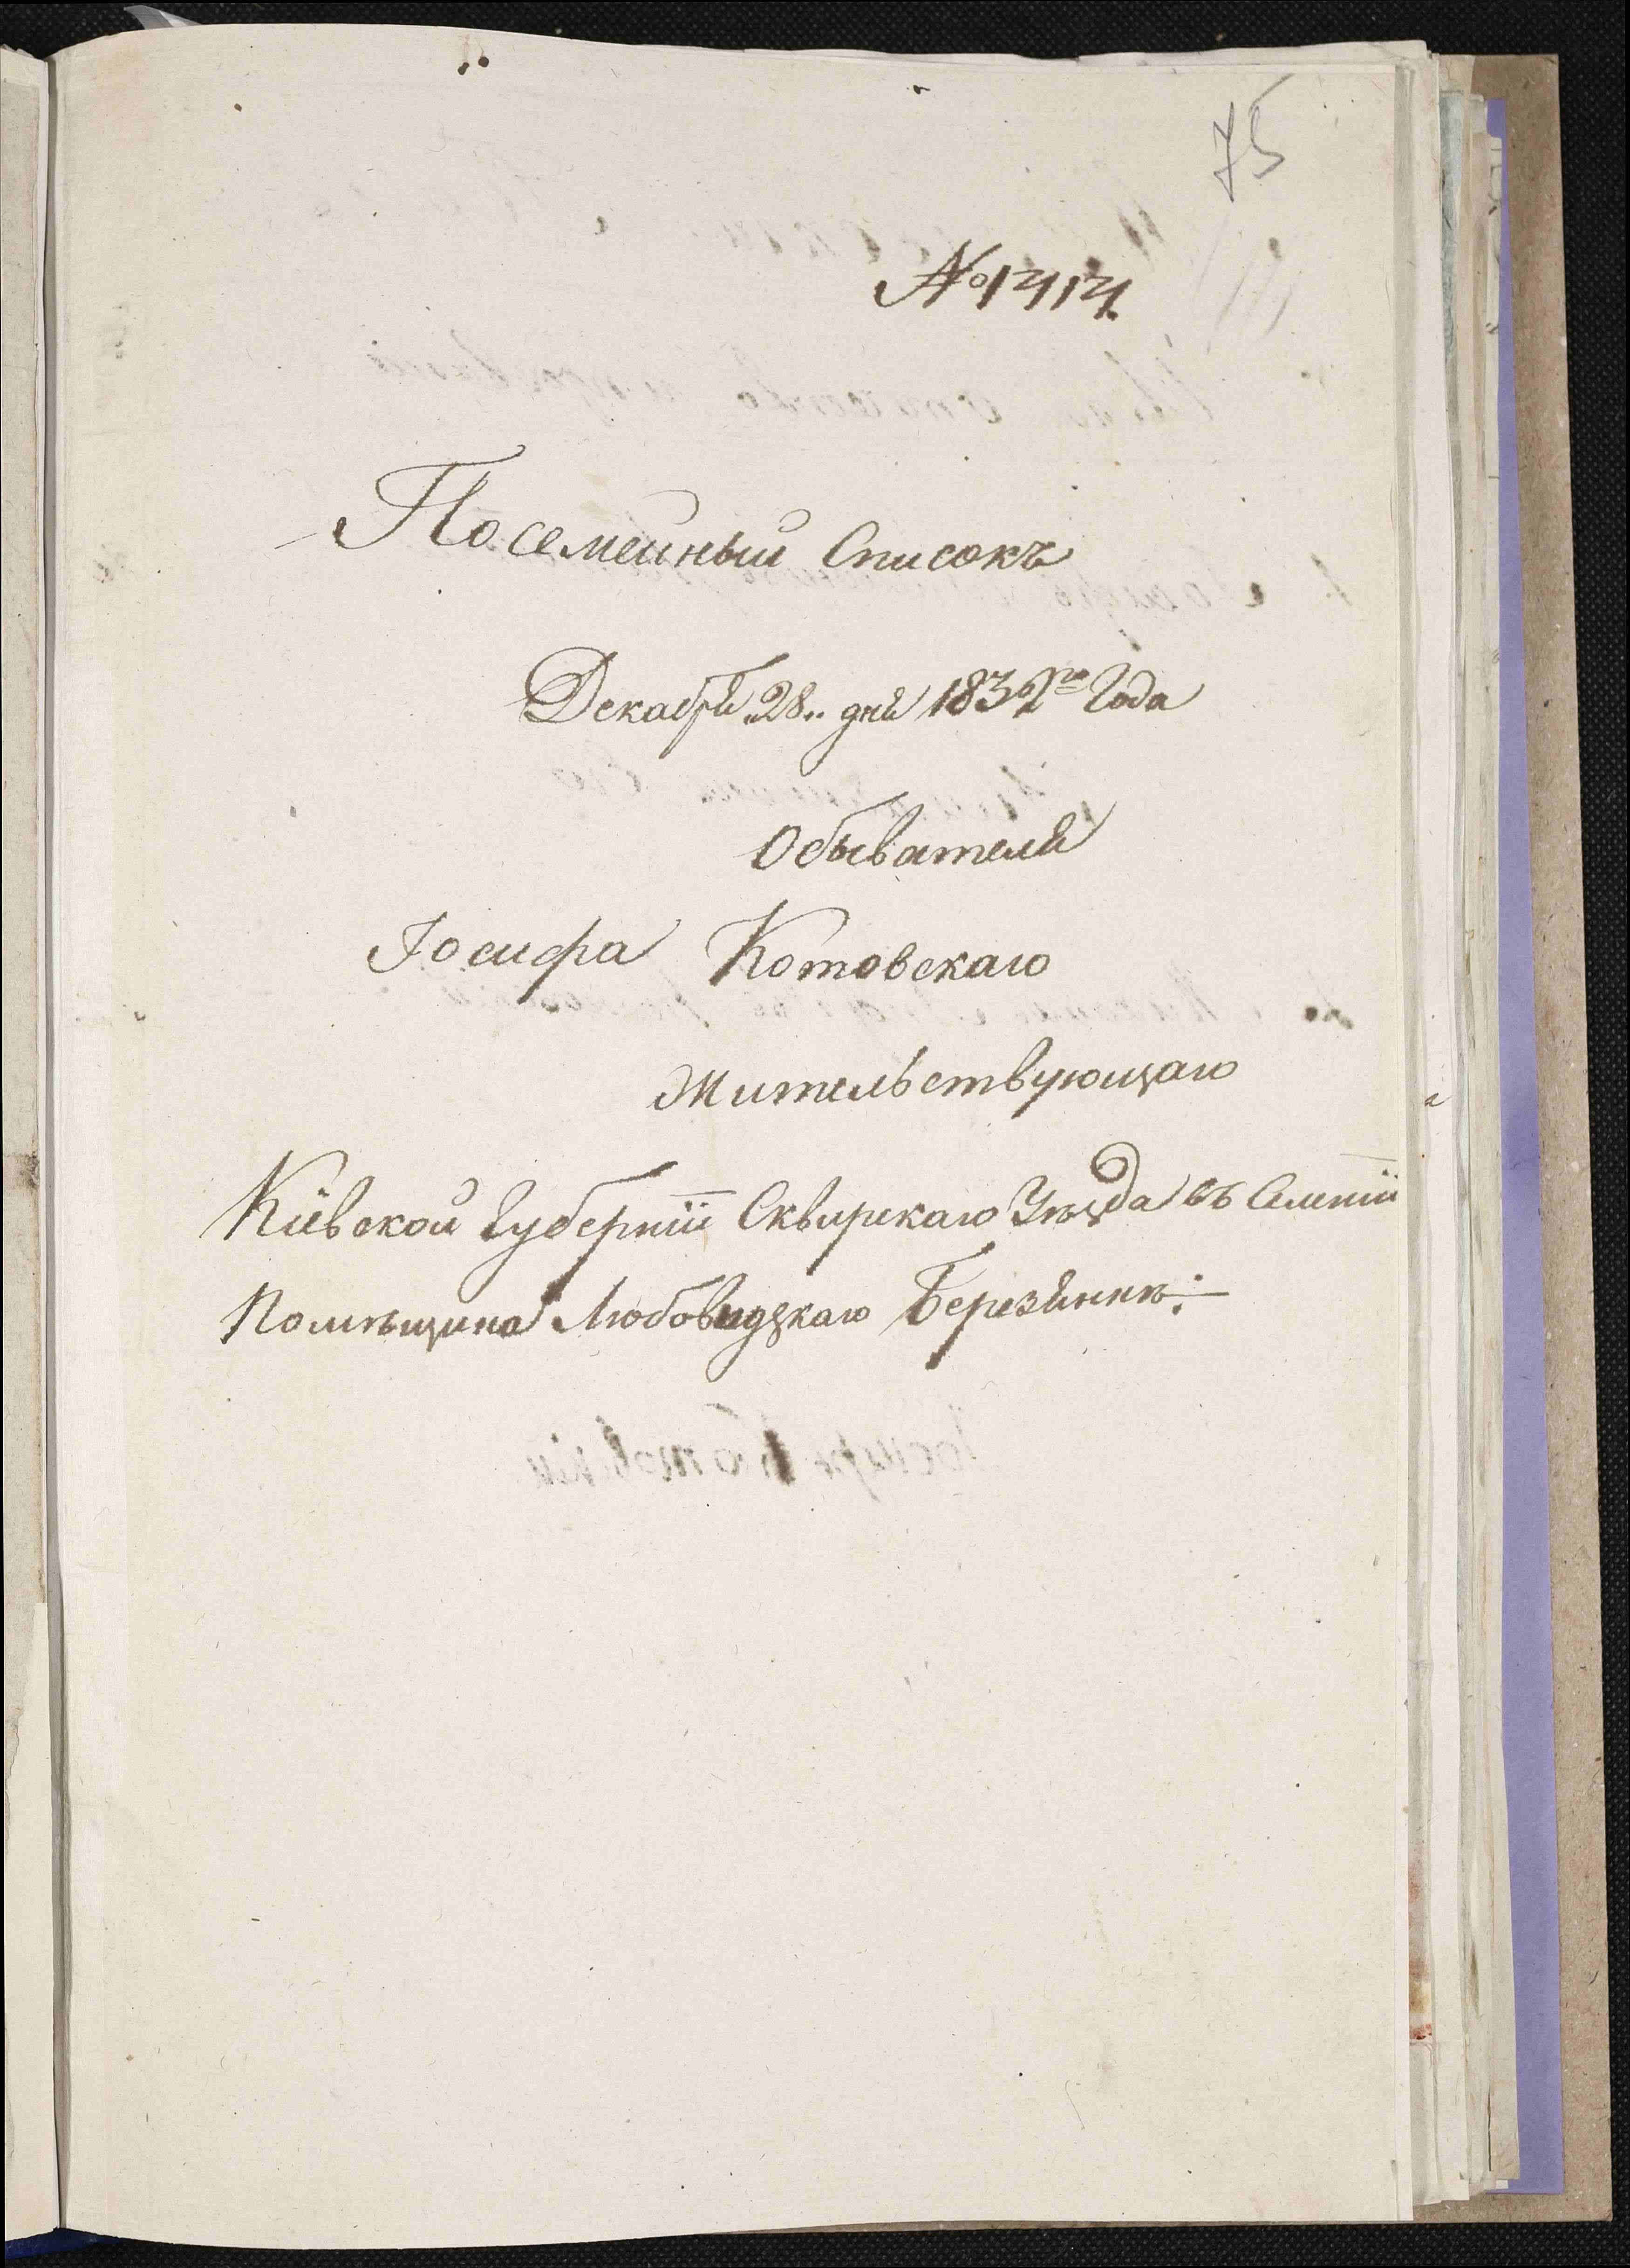 75
№ 1414.
Посемейный Списокъ
Декабря „28„ дня 1832го Года
Обывателя
Іосифа Котовскаго
Жительствующаго
Кіевской Губерніи Сквирскаго Уѣзда въ
Помѣщика Любовидзкаго Березянкѣ
Іосифъ Котовскій